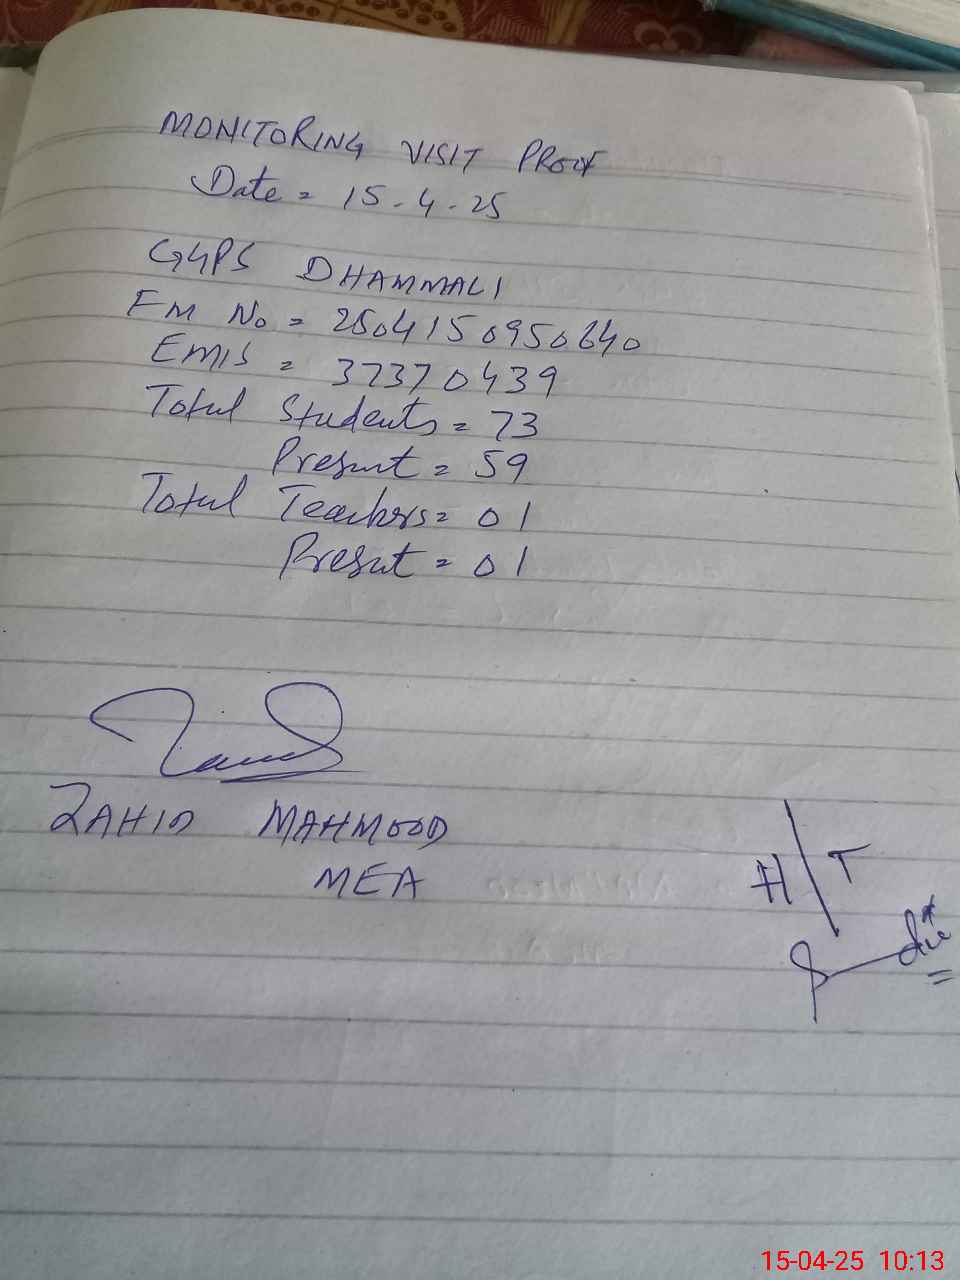 MONITORING VISIT PROOF
Date = 15-4-25
GGPS DHAMMALI
FM No = 2504150950640
EMIS = 37370439
Total Students = 73
Present = 59
Total Teachers = 01
Present = 01
ZAHID MAHMOOD
MEA
H/T
15-04-25 10:13